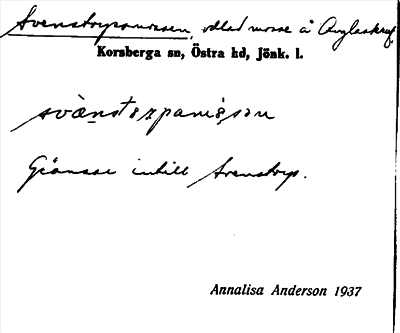 Svenstorpamossen, odlad mosse å Änglaskruf
Korsberga sn, Östra hd, Jönk. l.
Gränsar intill Svenstorp.
Annalisa Anderson 1937